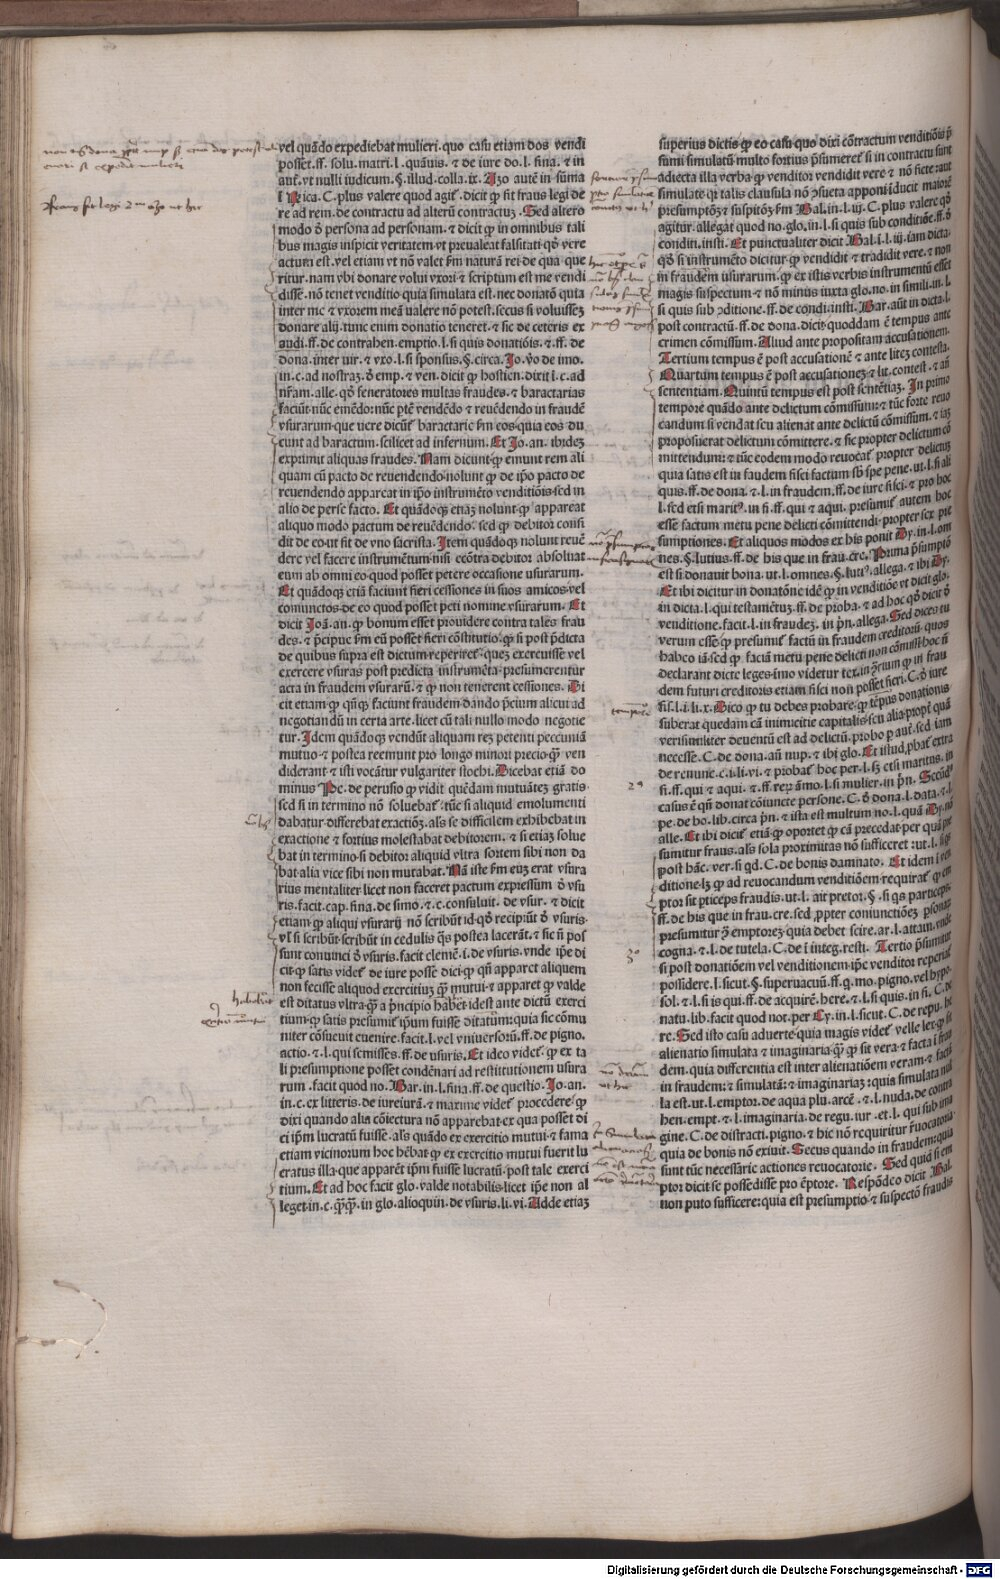 vel quādo expediebat mulieri. quo casu etiam dos vendi
posset. ff. solu. matri. l. quāuis. ⁊ de iure do. l. fina. ⁊ in
aut̄. vt nulli iudicum. §. illud. colla. ix. Azo autē in sūma
C. plus valere quod agit̄. dicit ꝙ fit fraus legi de
re ad rem. de contractu ad alterū contractuȝ. Sed altero
modo ō persona ad personam. ⁊ dicit ꝙ in omnibus tali
bus magis inspicit veritatem. vt preualeat falsitati qō vere
actum est. vel etiam vt nō valet ẜm naturā rei de qua que
ritur. nam vbi donare volui vxori ⁊ scriptum est me vendi
disse. nō tenet venditio quia simulata est. nec donatō quia
inter me ⁊ vxorem meā valere nō potest. secus si voluissem
donare alij. tunc enim donatio teneret. ⁊ sic de ceteris ex
audi. ff. de contrahen. emptio. l. si quis donatiōis. ⁊. ff. de
dona. inter vir. ⁊ vxo. l. si sponsus. §. circa. Jo. v̄o de imo.
in. c. ad nostraȝ. ō emp. ⁊ ven. dicit ꝙ hostien. dixit l. c. ad
nr̄am. alle. qō feneratores multas fraudes. ⁊ baractarias
faciūt. nūc emēdo. nūc ptē vendēdo ⁊ reuēdendo in fraudē
vsurarum que vere dicūt̄ baractarie ẜm eos. quia eos du
cunt ad baractum. scilicet ad infernum. Et Jo. an. ibideȝ
exprimit aliquas fraudes. Nam dicunt ꝙ emunt rem ali
quam cū pacto de reuendendo. nolunt ꝙ de ip̄o pacto de
reuendendo appareat in ip̄o instrumēto venditiōis. sed in
alio de per se facto. Et quādoqȝ etiaȝ nolunt ꝙ appareat
aliquo modo pactum de reuēdendo. sed ꝙ debitor confi
dit de eo. vt fit de vno sacrista. Item quādoqȝ nolunt reuē
dere vel facere instrumētum. nisi ecōtra debitor absoluat
eum ab omni eo. quod posset petere occasione vsurarum.
Et quādoqȝ etiā faciunt fieri cessiones in suos amicos. vel
coniunctos. de eo quod posset peti nomine vsurarum. Et
dicit Joā. an. ꝙ bonum esset prouidere contra tales frau
des. ⁊ p̄cipue ẜm eū posset fieri cōstitutio. ꝙ si post p̄dicta
de quibus supra est dictum. reperiret̄. queȝ exercuisse vel
exercere vsuras post predicta instrumēta. presumerentur
acta in fraudem vsurarū. ⁊ ꝙ non tenerent cessiones. Di
cit etiam ꝙ qn̄qȝ faciunt fraudem dando p̄cium alicui ad
negotiandū in certa arte. licet cū tali nullo modo negotie
tur. Idem quādoqȝ vendūt aliquam reȝ petenti peccuniā
mutuo. ⁊ postea reemunt pro longo minori precio. ꝙ̄ ven
diderant. ⁊ isti vocātur vulgariter stochi. Dicebat etiā do
minus Pe. de perusio ꝙ vidit quēdam mutuāteȝ gratis.
sed si in termino nō soluebat̄. tūc si aliquid emolumenti
dabatur. differebat exactiōȝ. als̄ se difficilem exhibebat in
exactione ⁊ fortius molestabat debitorem. ⁊ si etiaȝ solue
bat in termino. si debitor aliquid vltra sortem sibi non da
bat. alia vice sibi non mutabat. Nā iste ẜm euȝ erat vsura
rius mentaliter. licet non faceret pactum expressum ō vsu
ris. facit cap. fina. de simo. ⁊ c. consuluit. de vsur. ⁊ dicit
etiam ꝙ aliqui vsurarij nō scribūt id. qō recipiūt ō vsuris.
vl̄ si scribūt. scribunt in cedulis q̄s postea lacerāt. ⁊ sic n̄ pos
sunt conuinci ō vsuris. facit clemē. i. de vsuris. vnde ip̄e di
cit. ꝙ satis videt̄ de iure posse dici. ꝙ qn̄ apparet aliquem
non fecisse aliquod exercitiuȝ ꝙ̄ mutui. ⁊ apparet ꝙ valde
est ditatus vltra ꝙ̄ a p̄ncipio habēt. idest ante dictū exerci
tium. ꝙ satis presumit̄ ip̄um fuisse ditatum. quia sic cōmu
niter cōsueuit euenire. facit. l. vel vniuersorū. ff. de pigno.
actio. ⁊. l. qui semisses. ff. de vsuris. Et ideo videt̄ ꝙ ex ta
li presumptione posset condēnari ad restitutionem vsura
rum. facit quod no. Bar. in. l. fina. ff. de questio. Jo. an.
in. c. ex litteris. de iureiurā. ⁊ maxime videt̄ procedere ꝙ
dixi quando alia cōiectura nō apparebat. ex qua posset di
ci ip̄m lucratū fuisse. als̄ quādo ex exercitio mutui. ⁊ fama
etiam vicinorum hoc hēbat̄ ꝙ ex exercitio mutui fuerit lu
cratus. illa que apparēt ip̄m fuisse lucratū. post tale exerci
tium. Et ad hoc facit glo. valde notabilis. licet ip̄e non al
leget. in. c. qꝙ̄ꝙ̄. in glo. alioquin. de vsuris. li. vi. Adde etiaȝ
superius dictis ꝙ eo casu quo dixi cōtractum venditiōis p̄
sumi simulatū. multo fortius p̄sumeret̄ si in contractu sunt
adiecta illa verba ꝙ venditor vendidit vere ⁊ nō ficte. aut
simulate. qr talis clausula nō ꝯsueta apponi. iducit maiorē
presumptōȝ ⁊ suspitōȝ ẜm Bal. in. l. iij. C. plus valere qō
agitur. allegāt quod no. glo. in. l. si quis sub conditiōe. ff. ō
conditi. insti. Et punctualiter dicit Bal. i. l. iij. iam dicta.
qō si instrumēto dicitur ꝙ vendidit ⁊ tradidit vere. ⁊ non
in fraudem vsurarum. ꝙ ex istis verbis instrumentū esset
magis suspectum. ⁊ nō minus iuxta glo. no. in simili. in. l.
si quis sub ꝯditione. ff. de condi. insti. Bar. aūt in dicta. l.
post contractū. ff. de dona. dicit. quoddam ē tempus ante
crimen cōmissum. Aliud ante propositam accusationem.
Tertium tempus ē post accusationē ⁊ ante liteȝ contesta.
Quartum tempus ē post accusationeȝ ⁊ lit. contest. ⁊ an̄
sententiam. Quintū tempus est post sentētiaȝ. In primo
tempore quādo ante delictum cōmissum. ⁊ tūc forte reuo
candum si vendat seu alienat ante delictū cōmissum. ⁊ iaȝ
proposuerat delictum cōmittere. ⁊ sic propter delictum cō
mittendum. ⁊ tūc eodem modo reuocat̄ propter delictuȝ
quia satis est in faudem fisci factum sb̄ spe pene. vt. l. si ali
quis. ff. de dona. ⁊. l. in fraudem. ff. de iure fisci. ⁊ pro hoc
l. sed etsi marit̄ꝰ. in fi. ff. qui ⁊ a qui. presumit̄ autem hoc
esse factum metu pene delicti cōmittendi. propter sex pre
sumptiones. Et aliquos modos ex his ponit Dy. in. l. om
nes. §. lutius. ff. de his que in frau. cre. Prima p̄sumptō
est si donauit bona. vt. l. omnes. §. lutiꝰ. allega. ⁊ ibi Dy.
Et ibi dicitur in donatōne idē ꝙ in venditiōe vt dicit glo.
in dicta. l. qui testamētuȝ. ff. de proba. ⁊ ad hoc qō dicit ō
venditione. facit. l. in fraudeȝ. in p̄n. allega. Sed dices tu
verum esse ꝙ presumit̄ factū in fraudem creditorū. quos
habeo iā. sed ꝙ faciā metu pene delicti non cōmissi. hoc n̄
declarant dicte leges. imo videtur tex. in ꝯrium ꝙ in frau
dem futuri creditoris etiam fisci non posset fieri. C. ō iure
fis. l. i. li. x. Dico ꝙ tu debes probare. ꝙ tēpus donationis
suberat quedam cā inimicitie capitalis. seu alia propt̄ quā
verisimiliter deuentū est ad delictū. probo p aut̄. sed iam
necesse. C. de dona. aū nup. ⁊ ibi glo. Et istud ꝓbat̄ extra
de renunc. c. i. li. vi. ⁊ probat̄ hoc per. l. sȝ etsi maritus. in
fi. ff. qui ⁊ a qui. ⁊. ff. reȝ amo. l. si mulier. in p̄n. Secūdꝰ
casus ē qn̄ donat cōiuncte persone. C. ō dona. l. data. ⁊. l.
pe. de bo. lib. circa p̄n. ⁊ ista est multum no. l. quā Dy. nō
alle. Et ibi dicit̄ etiā ꝙ oportet ꝙ cā precedat. per quā pre
sumitur fraus. als̄ sola proximitas nō sufficeret. vt. l. si qs
post hāc. ver. si qd. C. de bonis damnato. Et idem i ven
ditione. lȝ ꝙ ad reuocandum venditiōem requirat̄ ꝙ em
ptor sit pticeps fraudis. vt. l. ait pretor. §. si qs particeps.
ff. de his que in frau. cre. sed ꝓpter coniunctiōeȝ psonaȝ
presumitur ō emptoreȝ. quia debet scire. ar. l. attam. vnde
cogna. ⁊. l. de tutela. C. de i integ. resti. Tertio p̄sumitur
si post donatiōem vel venditionem ip̄e venditor reperiat̄
possidere. l. sicut. §. superuacuū. ff. q. mo. pigno. vel hypo.
sol. ⁊. l. si is qui. ff. de acquirē. here. ⁊. l. si quis. in fi. C. de
natu. lib. facit quod not. per Cy. in. l. sicut. C. de repu. he
re. Sed isto casu aduerte. quia magis videt̄ velle lex ꝙ sit
alienatio simulata ⁊ imaginaria. ꝙ̄ ꝙ sit vera ⁊ facta i frau
dem. quia differentia est inter alienatiōem veram. ⁊ factā
in fraudem. ⁊ simulatā. ⁊ imaginariaȝ. quia simulata nul
la est. vt. l. emptor. de aqua plu. arcē. ⁊. l. nuda. de contra
hen. empt. ⁊. l. imaginaria. de regu. iur. ⁊ et. l. qui sub ima
gine. C. de distracti. pigno. ⁊ hic nō requiritur r̄uocatoria
quia de bonis nō exiuit. Secus quando in fraudem. quia
sunt tūc necessarie actiones reuocatorie. Sed quid si em
ptor dicit se possedisse pro ēptore. Respōdeo dicit Bal.
non puto sufficere. quia est presumptio ⁊ suspectō fraudis
Digitalisierung gefördert durch die Deutsche Forschungsgemeinschaft - DFG